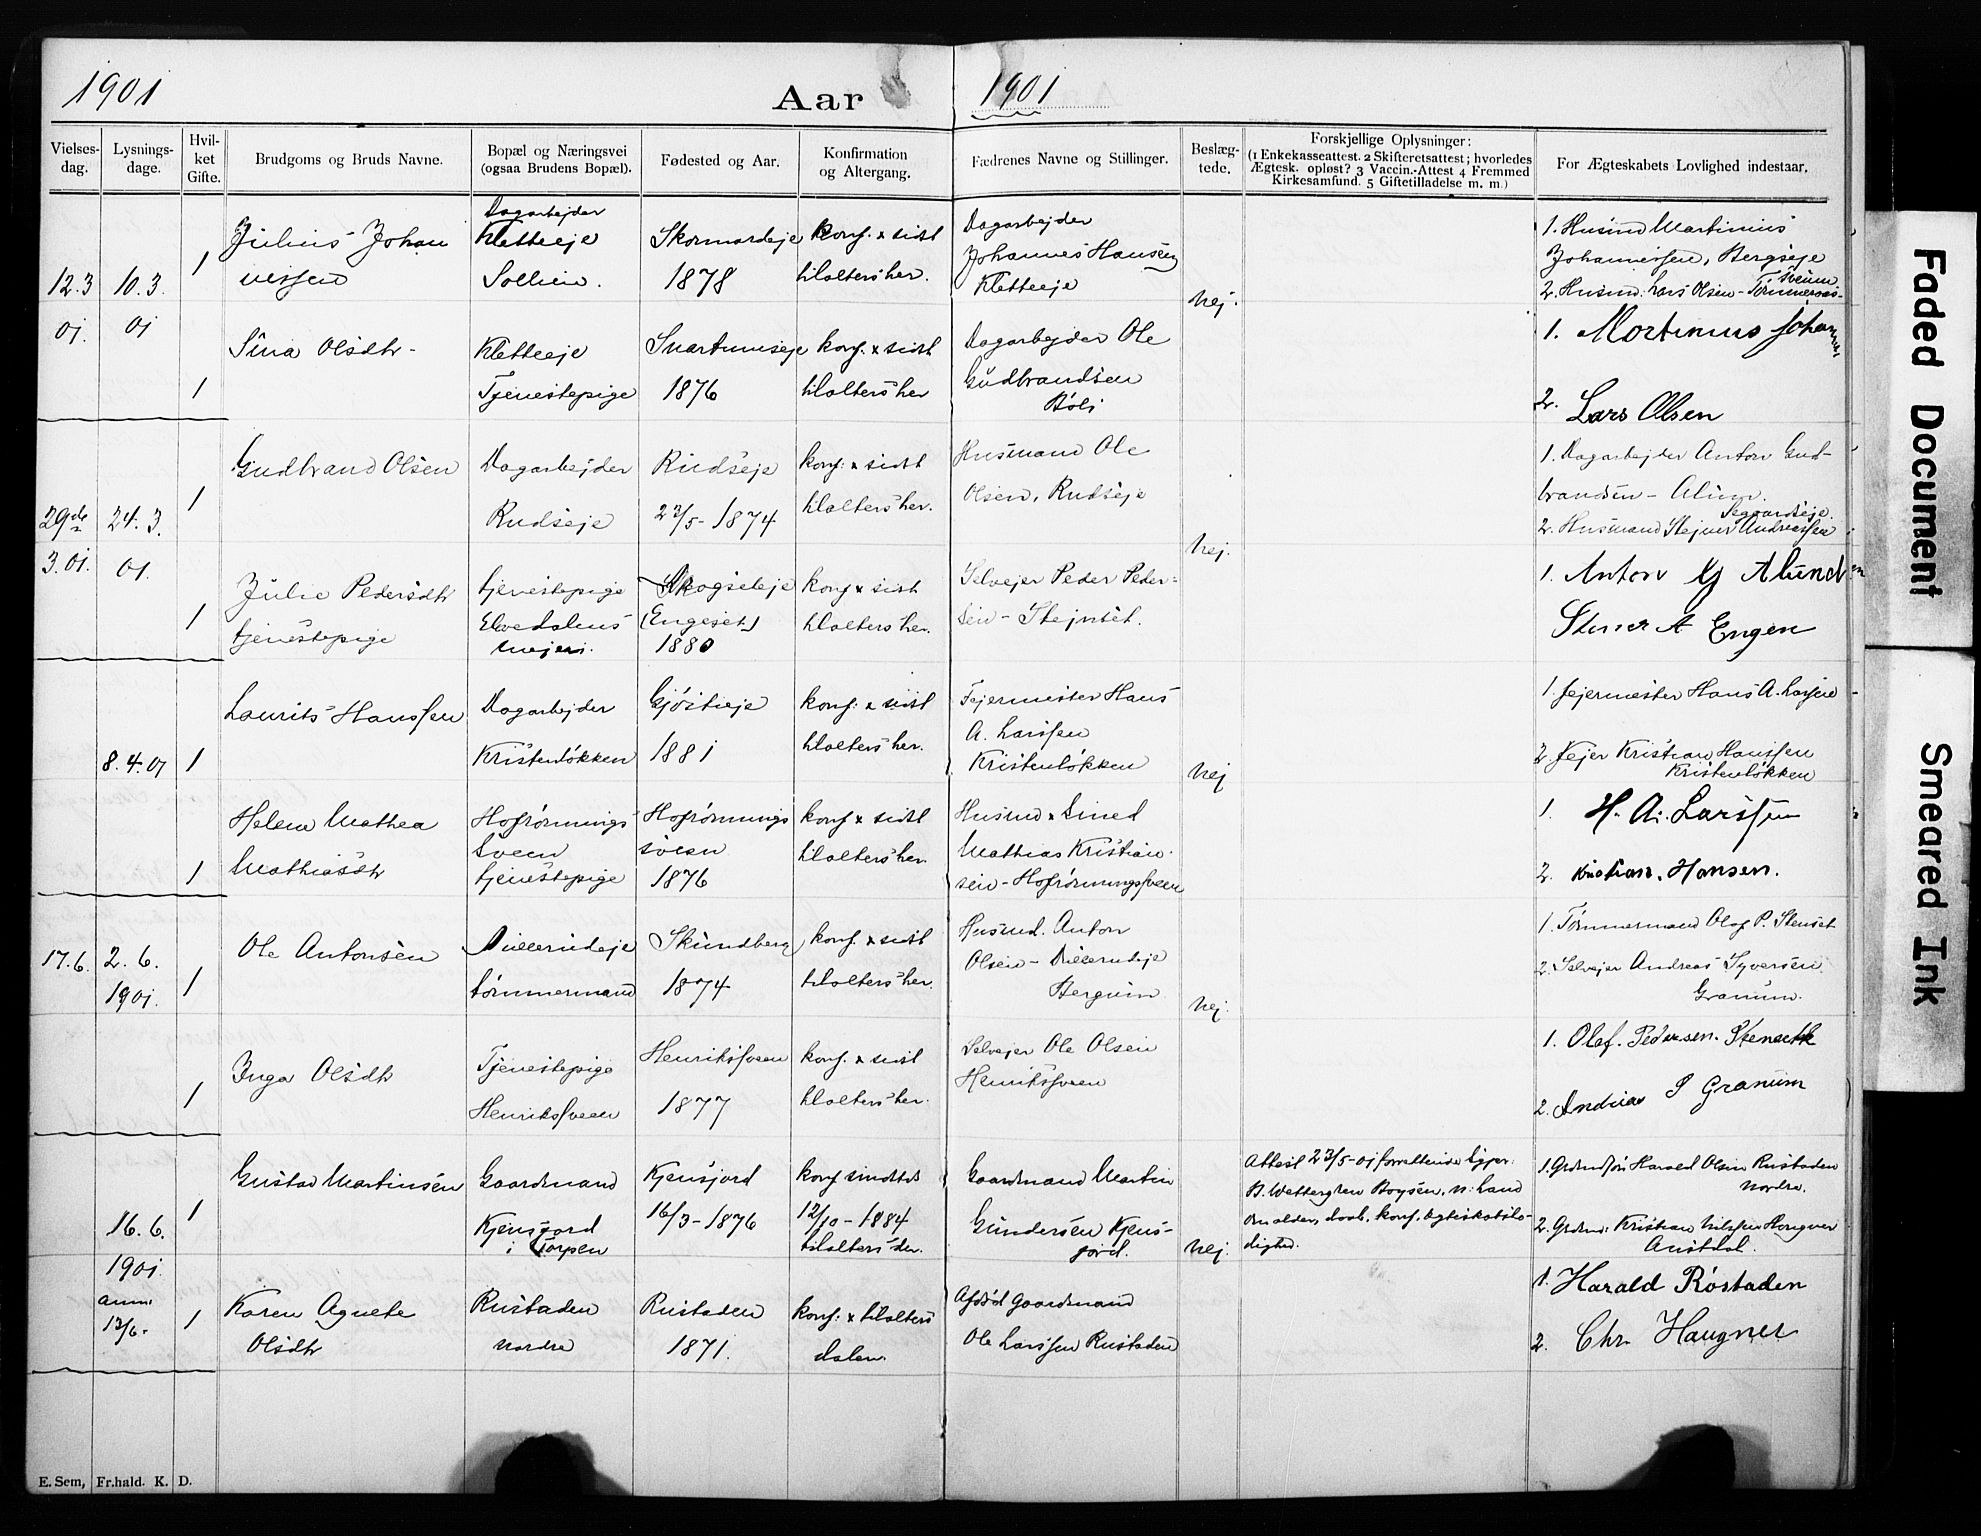 1901
Aar
1901
Vielses-
dag.
Lysnings-
dage.
Hvil-
ket
Gifte.
Brudgoms og Bruds Navne.
Bopæl og Næringsvei
(ogsaa Brudens Bopæl).
Fødested og Aar.
Konfirmation
og Altergang.
Fædrenes Navne og Stillinger.
Beslæg-
tede.
Forskjellige Oplysninger:
(1 Enkekasseattest. 2 Skifteretsattest; hvorledes
Ægtesk. opløst? 3 Vaccin.-Attest 4 Fremmed
Kirkesamfund. 5 Giftetilladelse m. m.)
For Ægteskabets Lovlighed indestaar.
12.3
01.
10.3.
01
1
Julius Johan
nessen
Dagarbejder
Kletteeje
Sollien.
1878
konf. & sidst
tilalters her.
Dagarbejder
Johannes Hansen
Kletteeje
nej.
1. Husmd Martinius
Johannessen, Bergseje
2. Husmd. Lars Olsen
1
Sina Olsdtr
Kletteeje
Tjenestepige
Svartumseje
1876
konf. & sidst
tilalters her
Dagarbejder Ole
Gudbrandsen
1. Martinius Johannes
2. Lars Olsen
29de
3.01.
24.3.
01.
1
Gudbrand Olsen
Dagarbejder
Rudseje
Rudseje
23/5-1874
konf. & sidst
tilalters her.
Husmand Ole
Olsen, Rudseje
nej.
1. Dagarbejder Anton Gud-
brandsen - Alun
2. Husmand Stejner Andreassen
1
Julie Pedersdtr
tjenestepige
tjenestepige
Elvedalens
mejeri.
Skogseteje
(Engeset)
1880
konf & sidst
tilalters her.
Selvejer Peder Peder-
sen - Stejnset.
1. Anton G Alund
Stener A Engen
8.4.01
1
Laurits Hanssen
Dagarbejder
Kristenløkken
Gjøstieje
1881
konf. & sidst
tilalters her.
Fejermester Hans
A. Larssen
Kristenløkken
nej
1. fejermester Hans A. Larssen
2. Fejer Kristian Hanssen
Kristenløkken
1
Helene Mathea
Mathiasdtr
Hofrønnings
sveen
tjenestepige
Hofrønnings
sveen
1876
konf & sidst
tilalters her.
Husmd & Smed
Mathias Kristian-
sen - Hofrønningssveen
1. H. A. Larssen
2. Kristian. Hansen.
17.6.
2.6.
1901.
1
Ole Antonsen
tømmermand
Skundberg
1874
konf. & sidst
tilalters her.
Husmd. Anton
Olsen
Bergum
nej.
1. Tømmermand Olaf P. Stenset
2. Selvejer Andreas Syversen
Granum.
1
Inga Olsdtr
Tjenestepige
Henrikssveen
Henrikssveen
1877
konf. & sidst
tilalters her.
Selvejer Ole Olsen
Henrikssveen
1. Olaf. Pedersen. Stenseth
2. Andreas S Granum
16.6.
1901.
anm.
13/6.
1
Gustav Martinsen
Gaardmand
Kjensjord
i Torpen
Kjensjord
16/3-1876
konf sindtes
12/10-1884
tilalters der.
Gaardmand Martin
Gundersen Kjens-
jord.
nej.
Attest 23/5-01 forrettende Sgjpr.
B. Wettergren Boysen, n: Land
om alder, daab, konf, ægteskabsle-
dighed.
1. Grdmdsøn Harald Olsen Rustaden
nordre.
2. Grdmd: Kristian Nilssen Hougner
Austdal.
1
Karen Agnete
Olsdtr
Rustaden
nordre
Rustaden
1871.
konf. & tilalters
dalen.
Afdød Gaardmand
Ole Larssen Rustaden
1. Harald Röstaden
2. Chr. Haugner
E. Sem, Fr.hald. K. D.
Faded Document
Smeared Ink